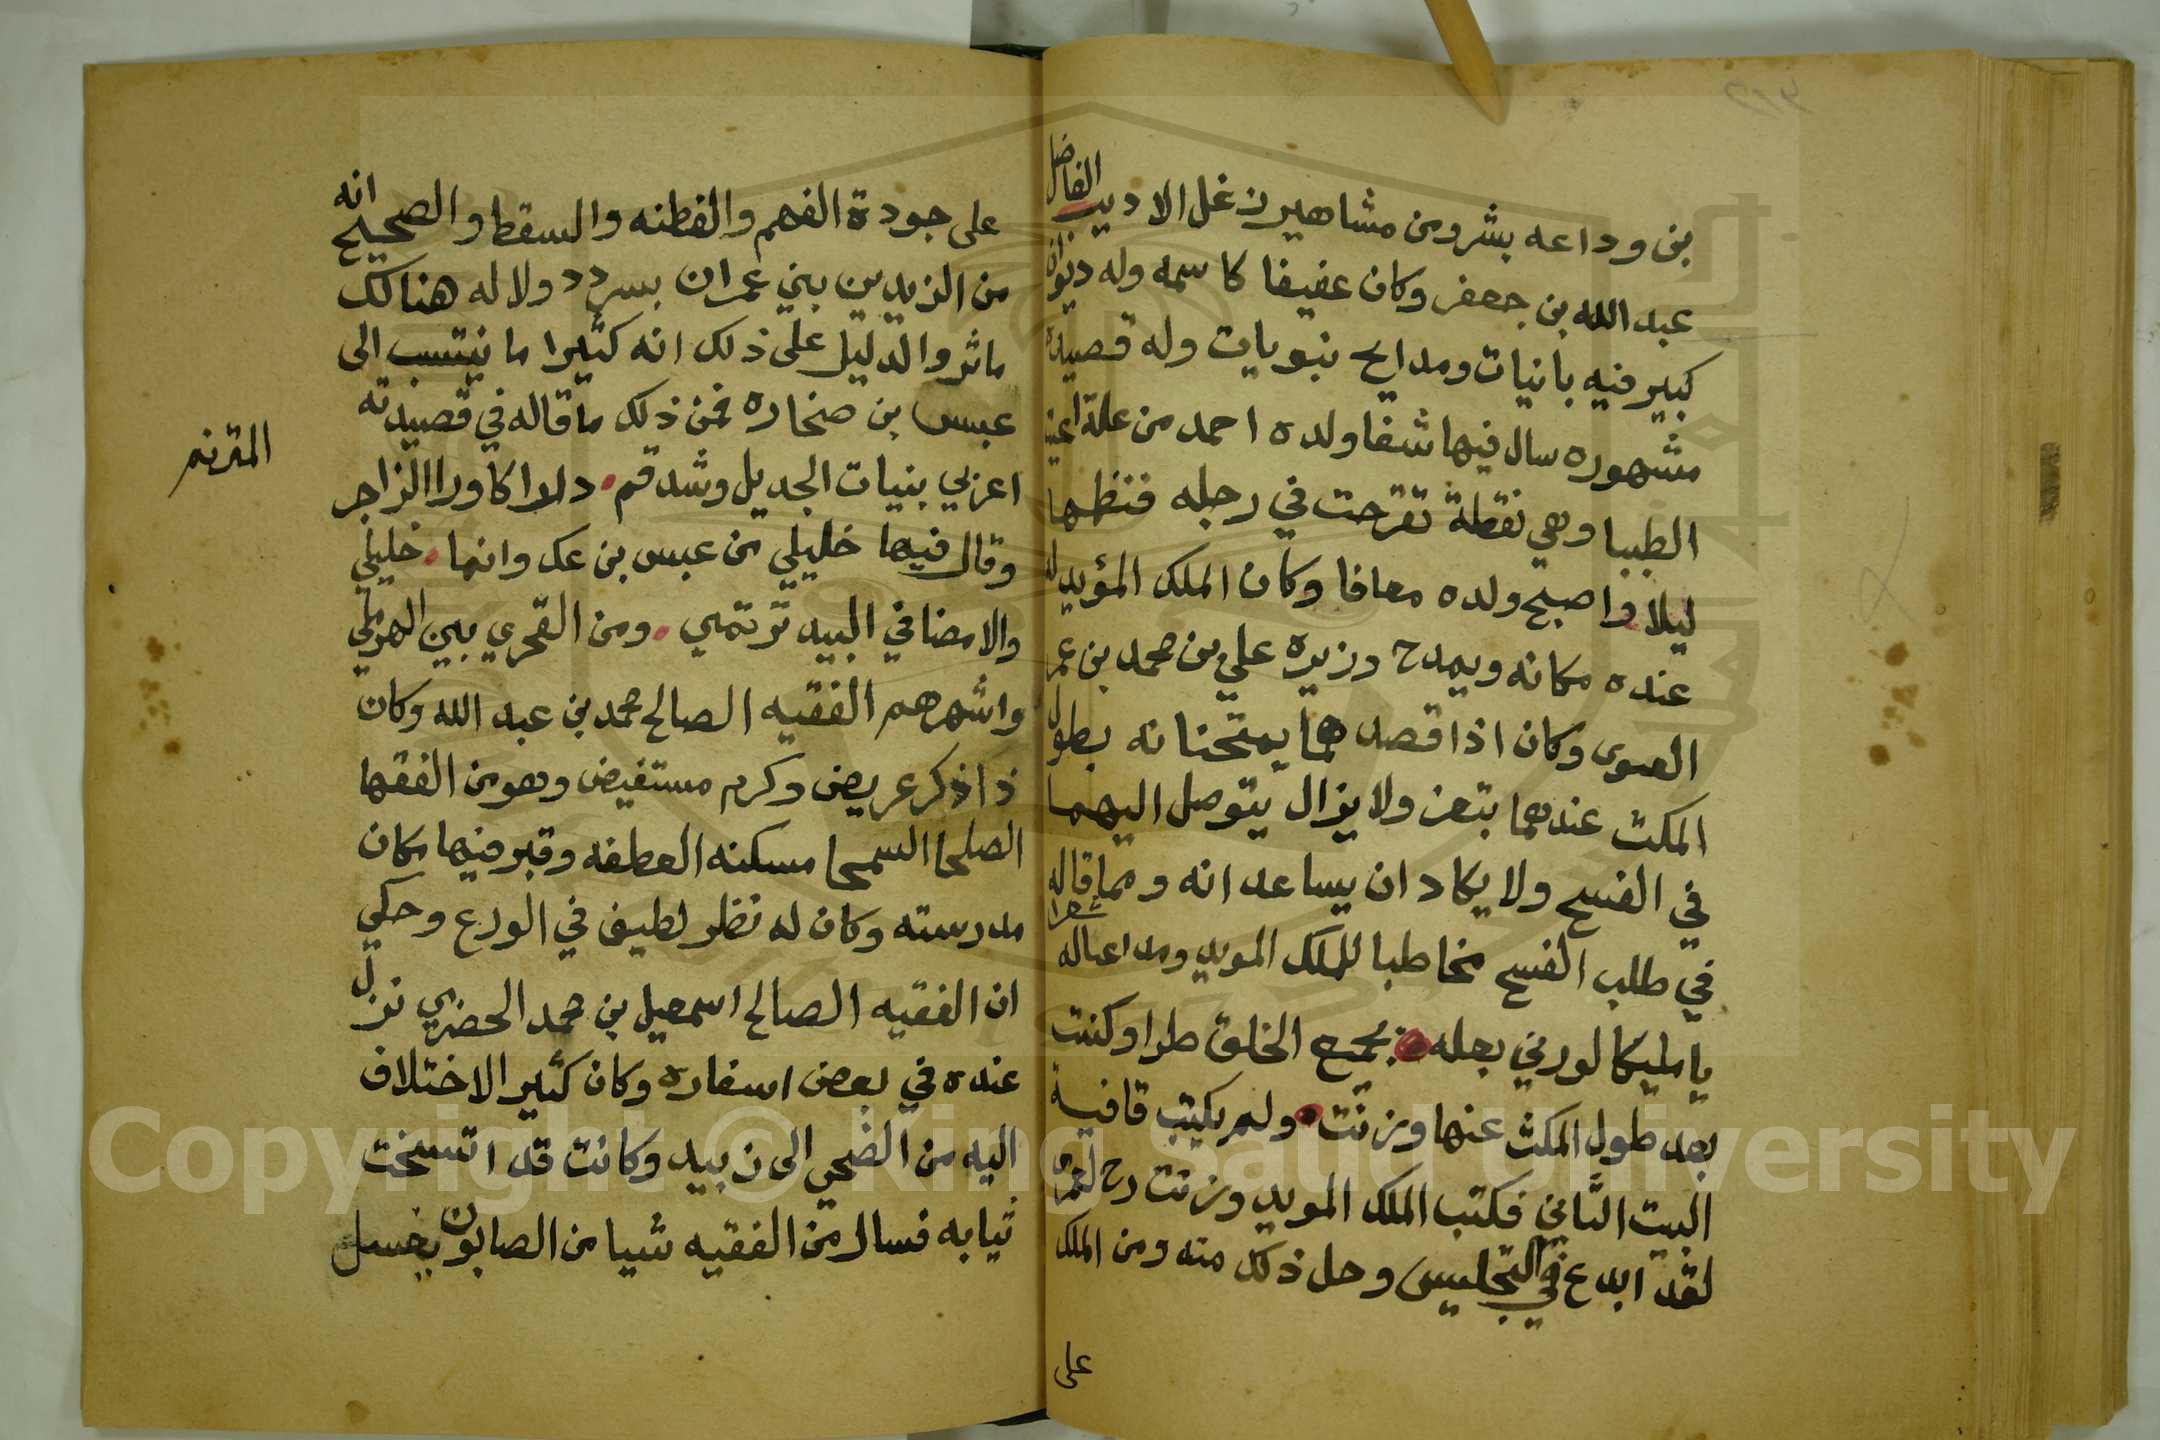 بن وداعه بشر ومن مشاهير زغل الاديب الفاضل
عبد الله بن جعفر وكان عفيفا كاسمه وله ديوان
كبير فيه بانيات ومدايح نبويات وله قصيدة
مشهوره سال فيها شفا ولده احمد من علة اعيت
الطببا وهي نقطة تقرحت في رجله فنظمها
ليلا واصبح ولده معافا وكان الملك المؤيد له
عنده مكانه ويمدح وزيره علي بن محمد بن عمر
العىوى وكان اذا قصدهما يمتحنانه بطول
المكث عندهما بتعز ولا يزال يتوصل اليهما
في الفسح ولا يكاد ان يساعدانه ومما قاله
في طلب الفسح مخاطبا للملك المويد ومداعباله شعرا
يا مليكا لو رني بعله جميع الخلق طرا وكنت
بعد طول المكث عنها وزنت ولم يكتب قافية
البيت الثاني فكتب الملك المويد وزنت رح لعمري
لقد ابدع في التجليس وحل ذلك منه ومن الملك
على
على جودة الفهم والفطنه والسقط والصحيح انه
من الزيديين بني عمران بسردد ولا له هنالك
ماثر والدليل على ذلك انه كثيرا ما ينتسب الى
عبس بن صخاره فمن ذلك ما قاله في قصيدته
اعزبي بنيات الجديل وشدقم دلا اكاورا الزاجر
المترنم
وقال فيها خليلي من عبس بن عك وانما خليلي
والامضا في البيد ترتمي ومن القحري بين الهرملي
واشهرهم الفقيه الصالح محمد بن عبد الله وكان
ذا ذكر عريض وكرم مستفيض وهو من الفقها
الصلحا السمحا مسكنه العطفه وقبر فيها مكان
مدرسته وكان له نظر لطيف في الورع وحكي
ان الفقيه الصالح اسمعيل بن محمد الحضرمي نزل
عنده في بعض اسفاره وكان كثير الاختلاف
اليه من الضحي الى زبيد وكانت قد اتسخت
ثيابه فسال من الفقيه شيا من الصابون يغسل
Copyright © King Saud University